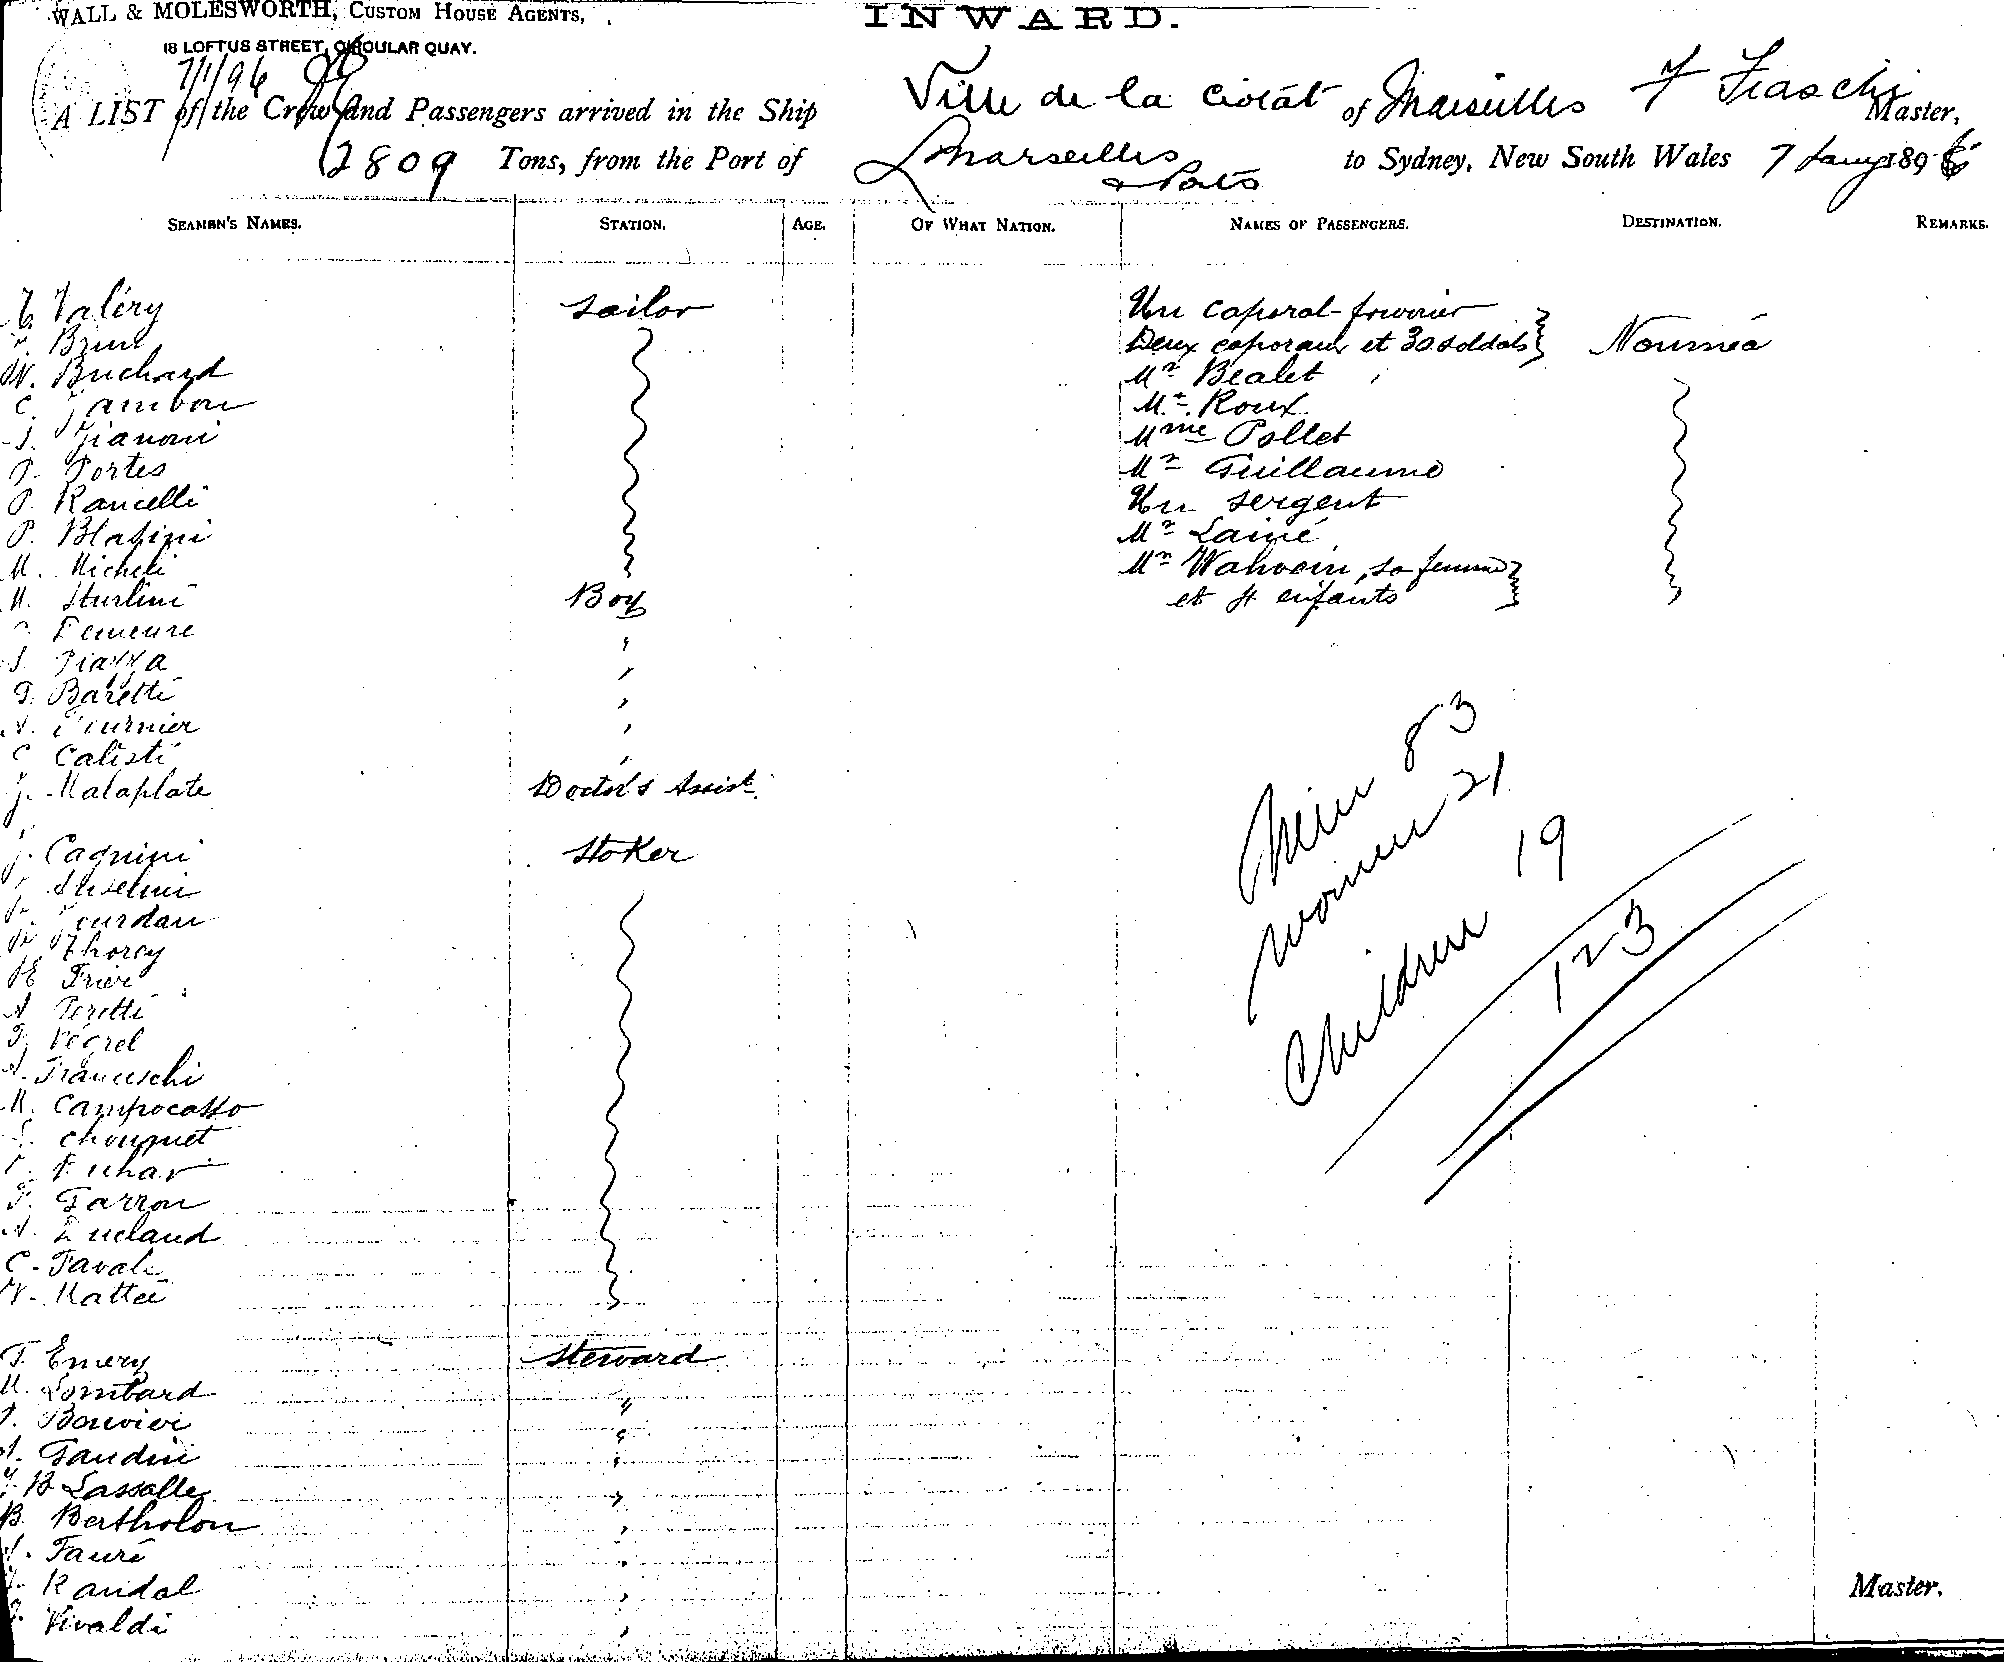 WALL & MOLESWORTH, CUSTOM HOUSE AGENTS,
18 LOFTUS STREET, CIRCULAR QUAY.
INWARD.
7/1/96
A LIST of the Crew and Passengers arrived in the Ship Ville de la Ciotat of Marseilles F Fiaschi Master,
2809 Tons, from the Port of Marseilles & Ports to Sydney, New South Wales 7 Jany 1896
SEAMEN'S NAMES. STATION. AGE. OF WHAT NATION. NAMES OF PASSENGERS. DESTINATION. REMARKS.
Valéry sailor Un caporal-fourrier
Brun Deux caporaux et 30 soldats Nouméa
Buchard Mr Bealet
C. Jambon Mr Roux
Gianoni Mme Pollet
P. Portes Mr Guillaume
P. Rancelli Un sergent
P. Blasini Mr Lainé
M. Micheli Mr Wahvein, sa femme
M. Sturlini Boy et 4 enfants
Demeure "
Piazza "
Baretti "
Fournier "
C Calisti "
J. Malaplate Doctor's Assist.
J. Cagnini Stoker
Anselmi
Jourdan
Thorey
Frier
A Peretti
Végrel
A. Franceschi
M. Campocasso
Chouquet
Garron
A. Lucland
C. Favale
Mattei
Emery Steward
M. Lombard "
Bouvier "
Gaudin "
J. B Lassalle "
B. Bertholon "
Fauré "
Randal "
Vivaldi "
Men 83
Women 21
Children 19
123
Master.